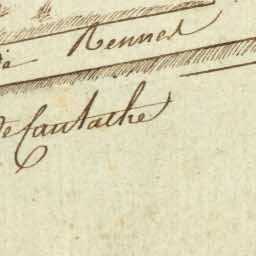 Rennes
de Cautache